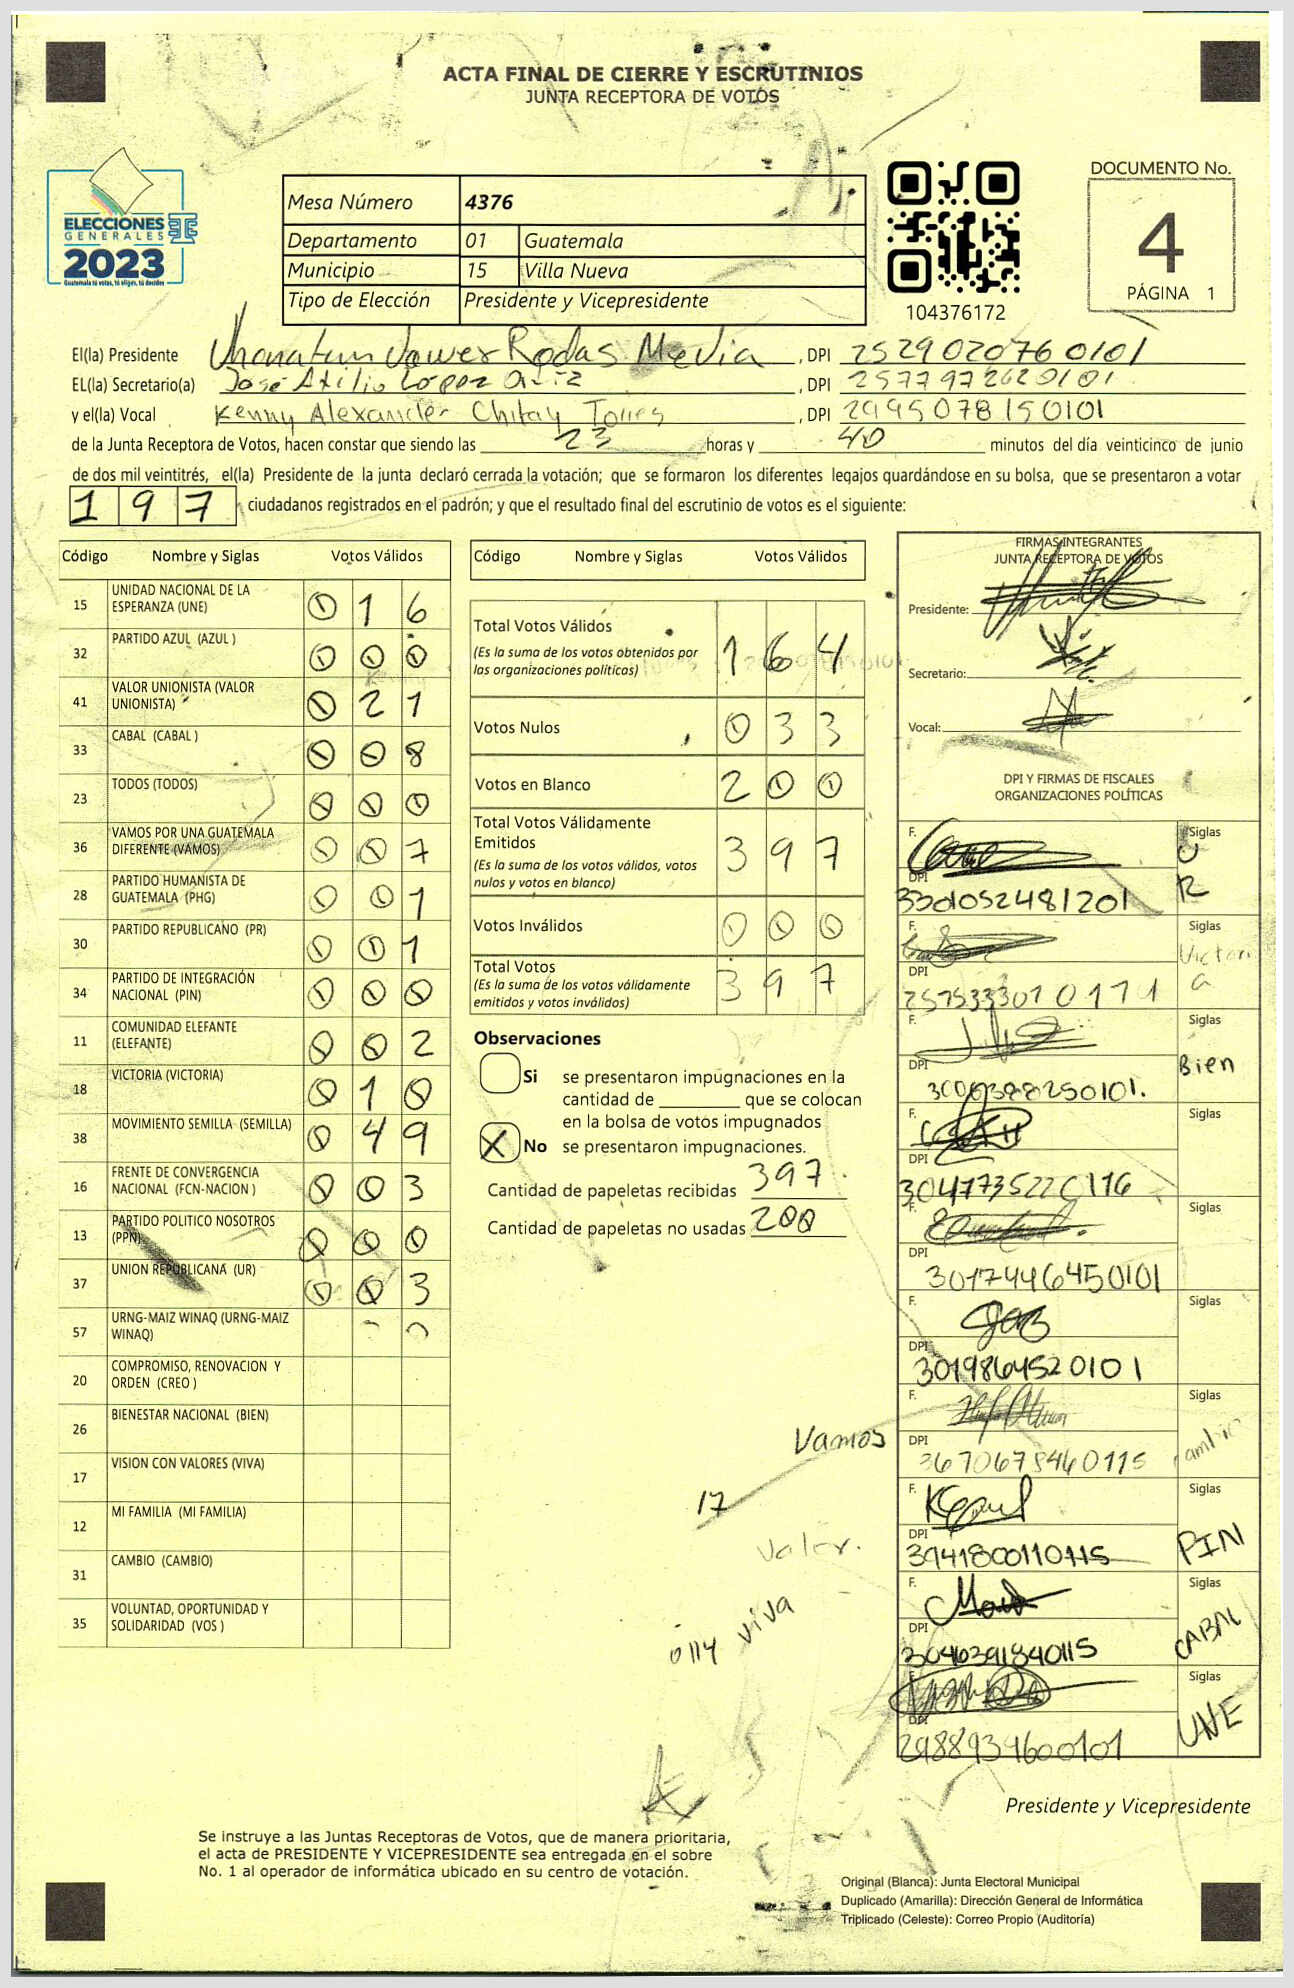 ACTA FINAL DE CIERRE Y ESCRUTINIOS
JUNTA RECEPTORA DE VOTOS
ELECCIONES
GENERALES
2023
Guatemala tú votas, tú eliges, tú decides
Mesa Número 4376
Departamento 01 Guatemala
Municipio 15 Villa Nueva
Tipo de Elección Presidente y Vicepresidente
104376172
DOCUMENTO No.
4
PÁGINA 1
El(la) Presidente Rodas Mevia, DPI 2529020760101
EL(la) Secretario(a) José Atilio López, DPI 2577972620101
y el(la) Vocal Kenny Alexander Chitay Torres, DPI 2995078150101
de la Junta Receptora de Votos, hacen constar que siendo las 23 horas y 40 minutos del día veinticinco de junio
de dos mil veintitrés, el(la) Presidente de la junta declaró cerrada la votación; que se formaron los diferentes legajos guardándose en su bolsa, que se presentaron a votar
197 ciudadanos registrados en el padrón; y que el resultado final del escrutinio de votos es el siguiente:
Código Nombre y Siglas Votos Válidos
15 UNIDAD NACIONAL DE LA ESPERANZA (UNE) 0 1 6
32 PARTIDO AZUL (AZUL ) 0 0 0
41 VALOR UNIONISTA (VALOR UNIONISTA) 0 2 1
33 CABAL (CABAL ) 0 0 8
23 TODOS (TODOS) 0 0 0
36 VAMOS POR UNA GUATEMALA DIFERENTE (VAMOS) 0 0 7
28 PARTIDO HUMANISTA DE GUATEMALA (PHG) 0 0 1
30 PARTIDO REPUBLICANO (PR) 0 0 1
34 PARTIDO DE INTEGRACIÓN NACIONAL (PIN) 0 0 0
11 COMUNIDAD ELEFANTE (ELEFANTE) 0 0 2
18 VICTORIA (VICTORIA) 0 1 0
38 MOVIMIENTO SEMILLA (SEMILLA) 0 4 9
16 FRENTE DE CONVERGENCIA NACIONAL (FCN-NACION ) 0 0 3
13 PARTIDO POLITICO NOSOTROS (PPN) 0 0 0
37 UNION REPUBLICANA (UR) 0 0 3
57 URNG-MAIZ WINAQ (URNG-MAIZ WINAQ)
20 COMPROMISO, RENOVACION Y ORDEN (CREO )
26 BIENESTAR NACIONAL (BIEN)
17 VISION CON VALORES (VIVA)
12 MI FAMILIA (MI FAMILIA)
31 CAMBIO (CAMBIO)
35 VOLUNTAD, OPORTUNIDAD Y SOLIDARIDAD (VOS )
Código Nombre y Siglas Votos Válidos
Total Votos Válidos 1 6 4
(Es la suma de los votos obtenidos por
las organizaciones políticas)
Votos Nulos 0 3 3
Votos en Blanco 2 0 0
Total Votos Válidamente
Emitidos 3 9 7
(Es la suma de los votos válidos, votos
nulos y votos en blanco)
Votos Inválidos 0 0 0
Total Votos 3 9 7
(Es la suma de los votos válidamente
emitidos y votos inválidos)
Observaciones
Si se presentaron impugnaciones en la
cantidad de ________ que se colocan
en la bolsa de votos impugnados
X No se presentaron impugnaciones.
Cantidad de papeletas recibidas 397
Cantidad de papeletas no usadas 200
Vamos
17
Valor.
0114 viva
FIRMAS INTEGRANTES
JUNTA RECEPTORA DE VOTOS
Presidente:
Secretario:
Vocal:
DPI Y FIRMAS DE FISCALES
ORGANIZACIONES POLÍTICAS
F. Siglas UR
DPI 3301052481201
F. Siglas Victoria
DPI
F. Siglas Bien
DPI
F. Siglas
DPI
F. Siglas
DPI 3017446450101
F. Siglas
DPI 3019864520101
F. Siglas
DPI
F. Siglas PIN
DPI 3941800110115
F. Siglas CABAL
DPI 3046391840115
F. Siglas UNE
DPI 2988939600101
Presidente y Vicepresidente
Se instruye a las Juntas Receptoras de Votos, que de manera prioritaria,
el acta de PRESIDENTE Y VICEPRESIDENTE sea entregada en el sobre
No. 1 al operador de informática ubicado en su centro de votación.
Original (Blanca): Junta Electoral Municipal
Duplicado (Amarilla): Dirección General de Informática
Triplicado (Celeste): Correo Propio (Auditoría)